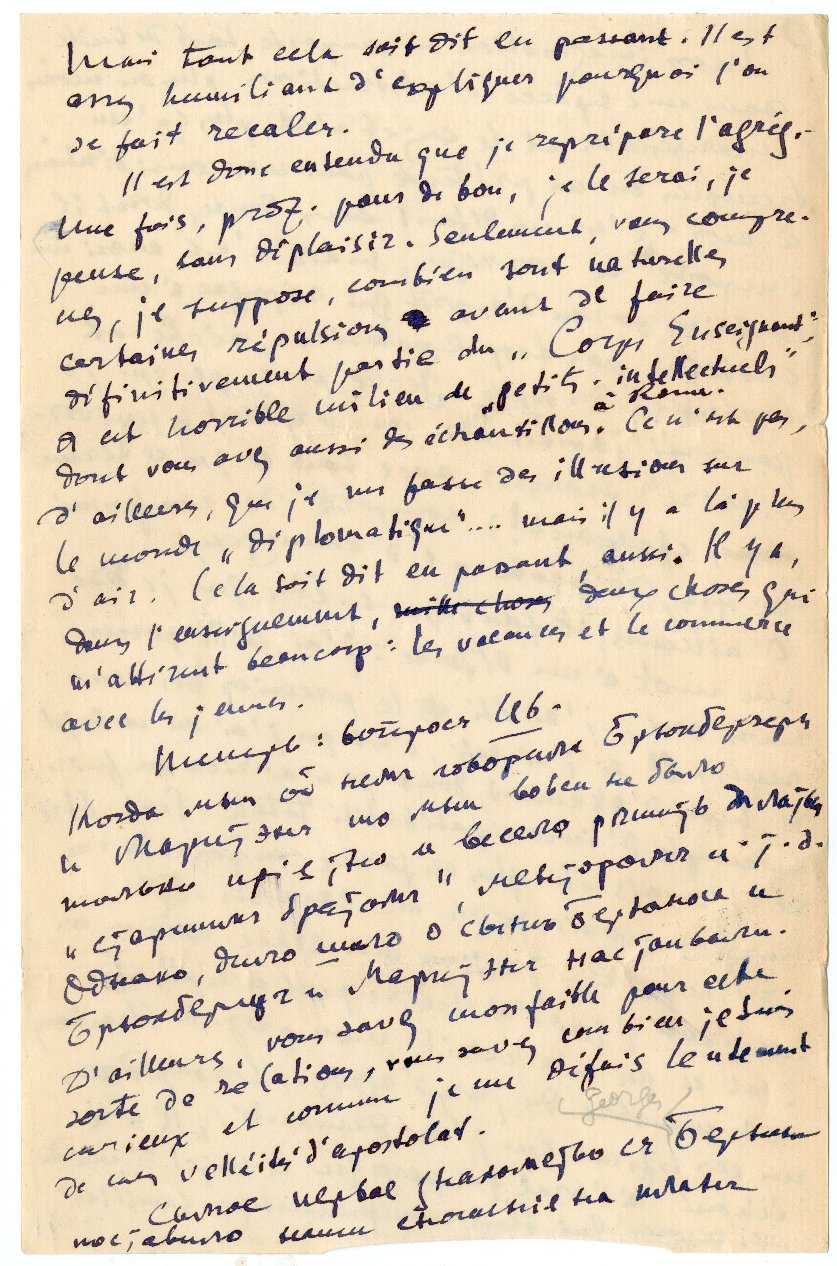 Mais tout cela soit dit en passant. Il est
assez humiliant d'expliquer pourquoi l'on
se fait recaler.
Il est donc entendu que je reprépare l'agrég.-
Une fois, prof. pour de bon, je le serai, je
pense, sans déplaisir. Seulement, vous compre-
nez, je suppose, combien sont naturelles
certaines répulsions avant de faire
définitivement partie du „Corps Enseignant";
cet horrible milieu de „petits-intellectuels"
dont vous avez aussi des échantillons à Rome. Ce n'est pas,
d'ailleurs, que je me fasse des illusions sur
le monde „diplomatique".... mais il y a là plus
d'air. Cela soit dit en passant, aussi. Il y a,
dans l'enseignement, mille choses deux choses qui
m'attirent beaucoup: les vacances et le commerce
avec les jeunes.
Теперь: вопросъ Цв.
Когда мы объ немъ говорили
и то мы вовсе не было
только пріятно и весело
„старшимъ братомъ" „менторомъ" и т. д.
Однако, дѣло шло о и
и настаивали.
D'ailleurs, vous savez mon faible pour cette
sorte de relations, vous savez combien je suis
curieux et comme je me défais lentement
de mes velléités d'apostolat.
Georges
Самое первое знакомство съ
поставило наши на